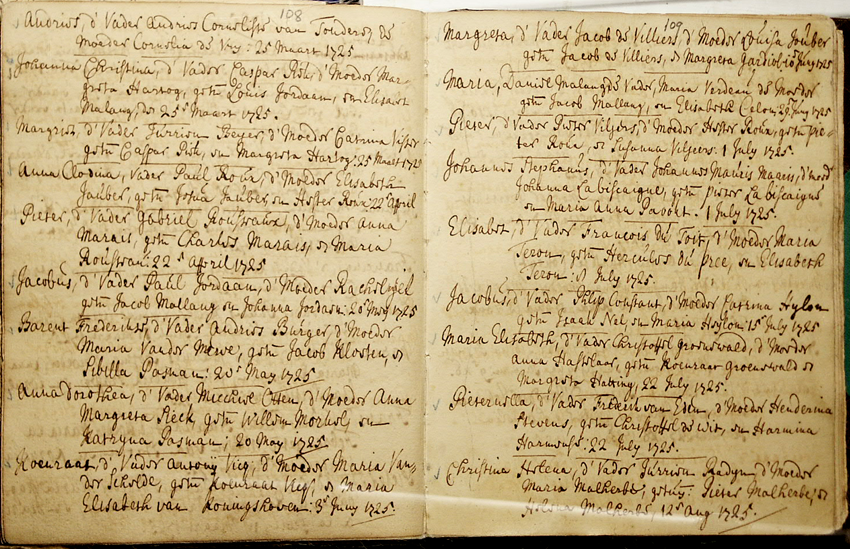 108
Andries, d' Vader Andries Cornelisse van Tonderen, de
Moeder Cornelia de Vry: 25 Maart 1725
Johanna Christina, d' Vader Caspar d' Moeder Mar-
greta Hartog, getn Louis Jordaan, en Elisabet
Malang, de 25e Maart 1725.
Margriet, d' Vader Jurrien Beyer, d' Moeder Catrina Visser
getn Caspar en Margreta Hartog: 25 Maart 1725
Anna Clodina, Vader Paul Roux, d' Moeder Elisabeth
Jauber, getn Josua Jauber, en Hester Roux 22 april
Pieter, d' Vader Gabriel Roussouw, d' Moeder Anna
Marais, getn Charles Marais, en Maria
22e april 1725
Jacobus, d' Vader Paul Jordaan, d' Moeder Rachel
getn Jacob Mallang en Johanna Jordaan: 20 May 1725
Barent Frederick, d' Vader Andries Burger, d' Moeder
Maria Vander Merwe, getn Jacob Kloeten, en
Sibilla Pasman: 20e May 1725
Anna Dorothea, d' Vader d' Moeder Anna
Margreta getn Willem en
Katryna Pasman; 20 May 1725
Koenraat, d' Vader Antony d' Moeder Maria Van-
der Schelde, getn Koenraat en Maria
Elisabeth van Koningshoven: 3e Juny 1725.
109
Margreta, d' Vader Jacob de Villiers, d' Moeder Louisa Jouber
getn Jacob de Villiers, en Margreta Gardiol: 10 Juny 1725
Maria, Daniel Malang de Vader, Maria Verdeau de Moeder
getn Jacob Mallang, en Elisabeth 1725
Pieter, d' Vader Pieter Viljers, d' Moeder Hester Roux, getn Pie-
ter Roux, en Susanna Viljeers. 1 July 1725.
Johannes Stephanus, d' Vader Johannes Marais, d' moed
Johanna Labiscaigne, getn Pieter Labiscaigne
en Maria Anna 1 July 1725.
Elisabet, d' Vader Francois du Toit, d' Moeder Maria
Teron, getn Hercules du Pree, en Elisabeth
Teron: 8 July 1725.
Jacobus, d' Vader Philip Constant, d' Moeder Katrina Hylon
getn Isaak Nel, en Maria Hylon: 15e July 1725
Maria Elisabeth, d' Vader Christoffel Groenewald, d' Moeder
Anna Hasselaar, getn Koenraat Groenewald en
Margreta Hatting, 22 July 1725.
Pieternella, d' Vader Frederik van Eden, d' Moeder Henderina
Stevens, getn Christoffel de Wit, en Harmina
Harmensz: 22 July 1725.
Christina Helena, d' Vader Jurrien Radyn, d' Moeder
Maria Malherbe, getuy: Pieter Malherbe, en
Helena Malherbe, 12e aug 1725.